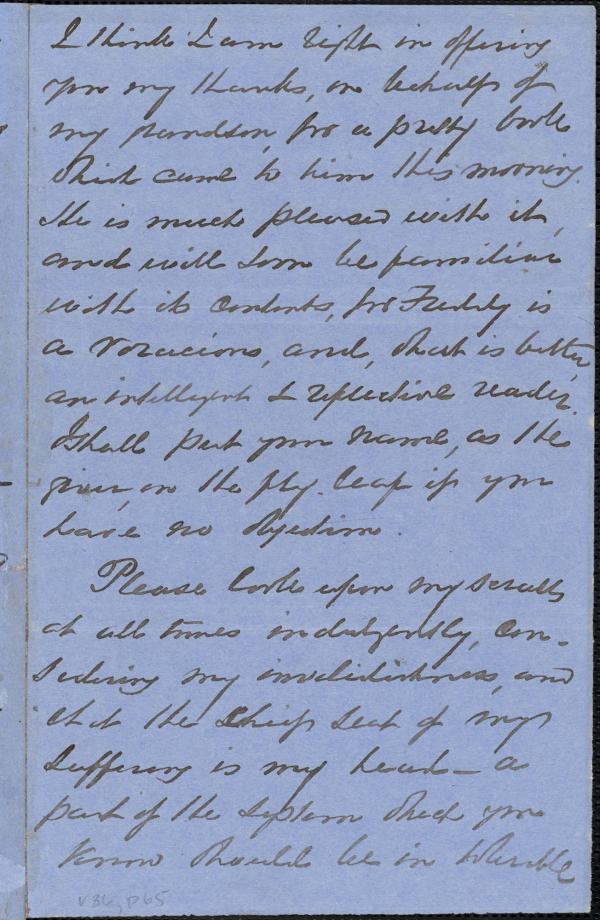 I think I am right in offering
you my thanks, on behalf of
my grandson, for a pretty book
which came to him this morning.
He is much pleased with it,
and will soon be familiar
with its contents, for Freddy is
a voracious, and, what is better,
an intelligent & reflective reader.
I shall put your name, as the
giver, on the fly-leaf if you
have no objection.
Please look upon my scrawls
at all times indulgently, con-
sidering my invalidishness, and
that the chief seat of my
suffering is my head — a
part of the system which you
know should be in tolerable
v36, p65